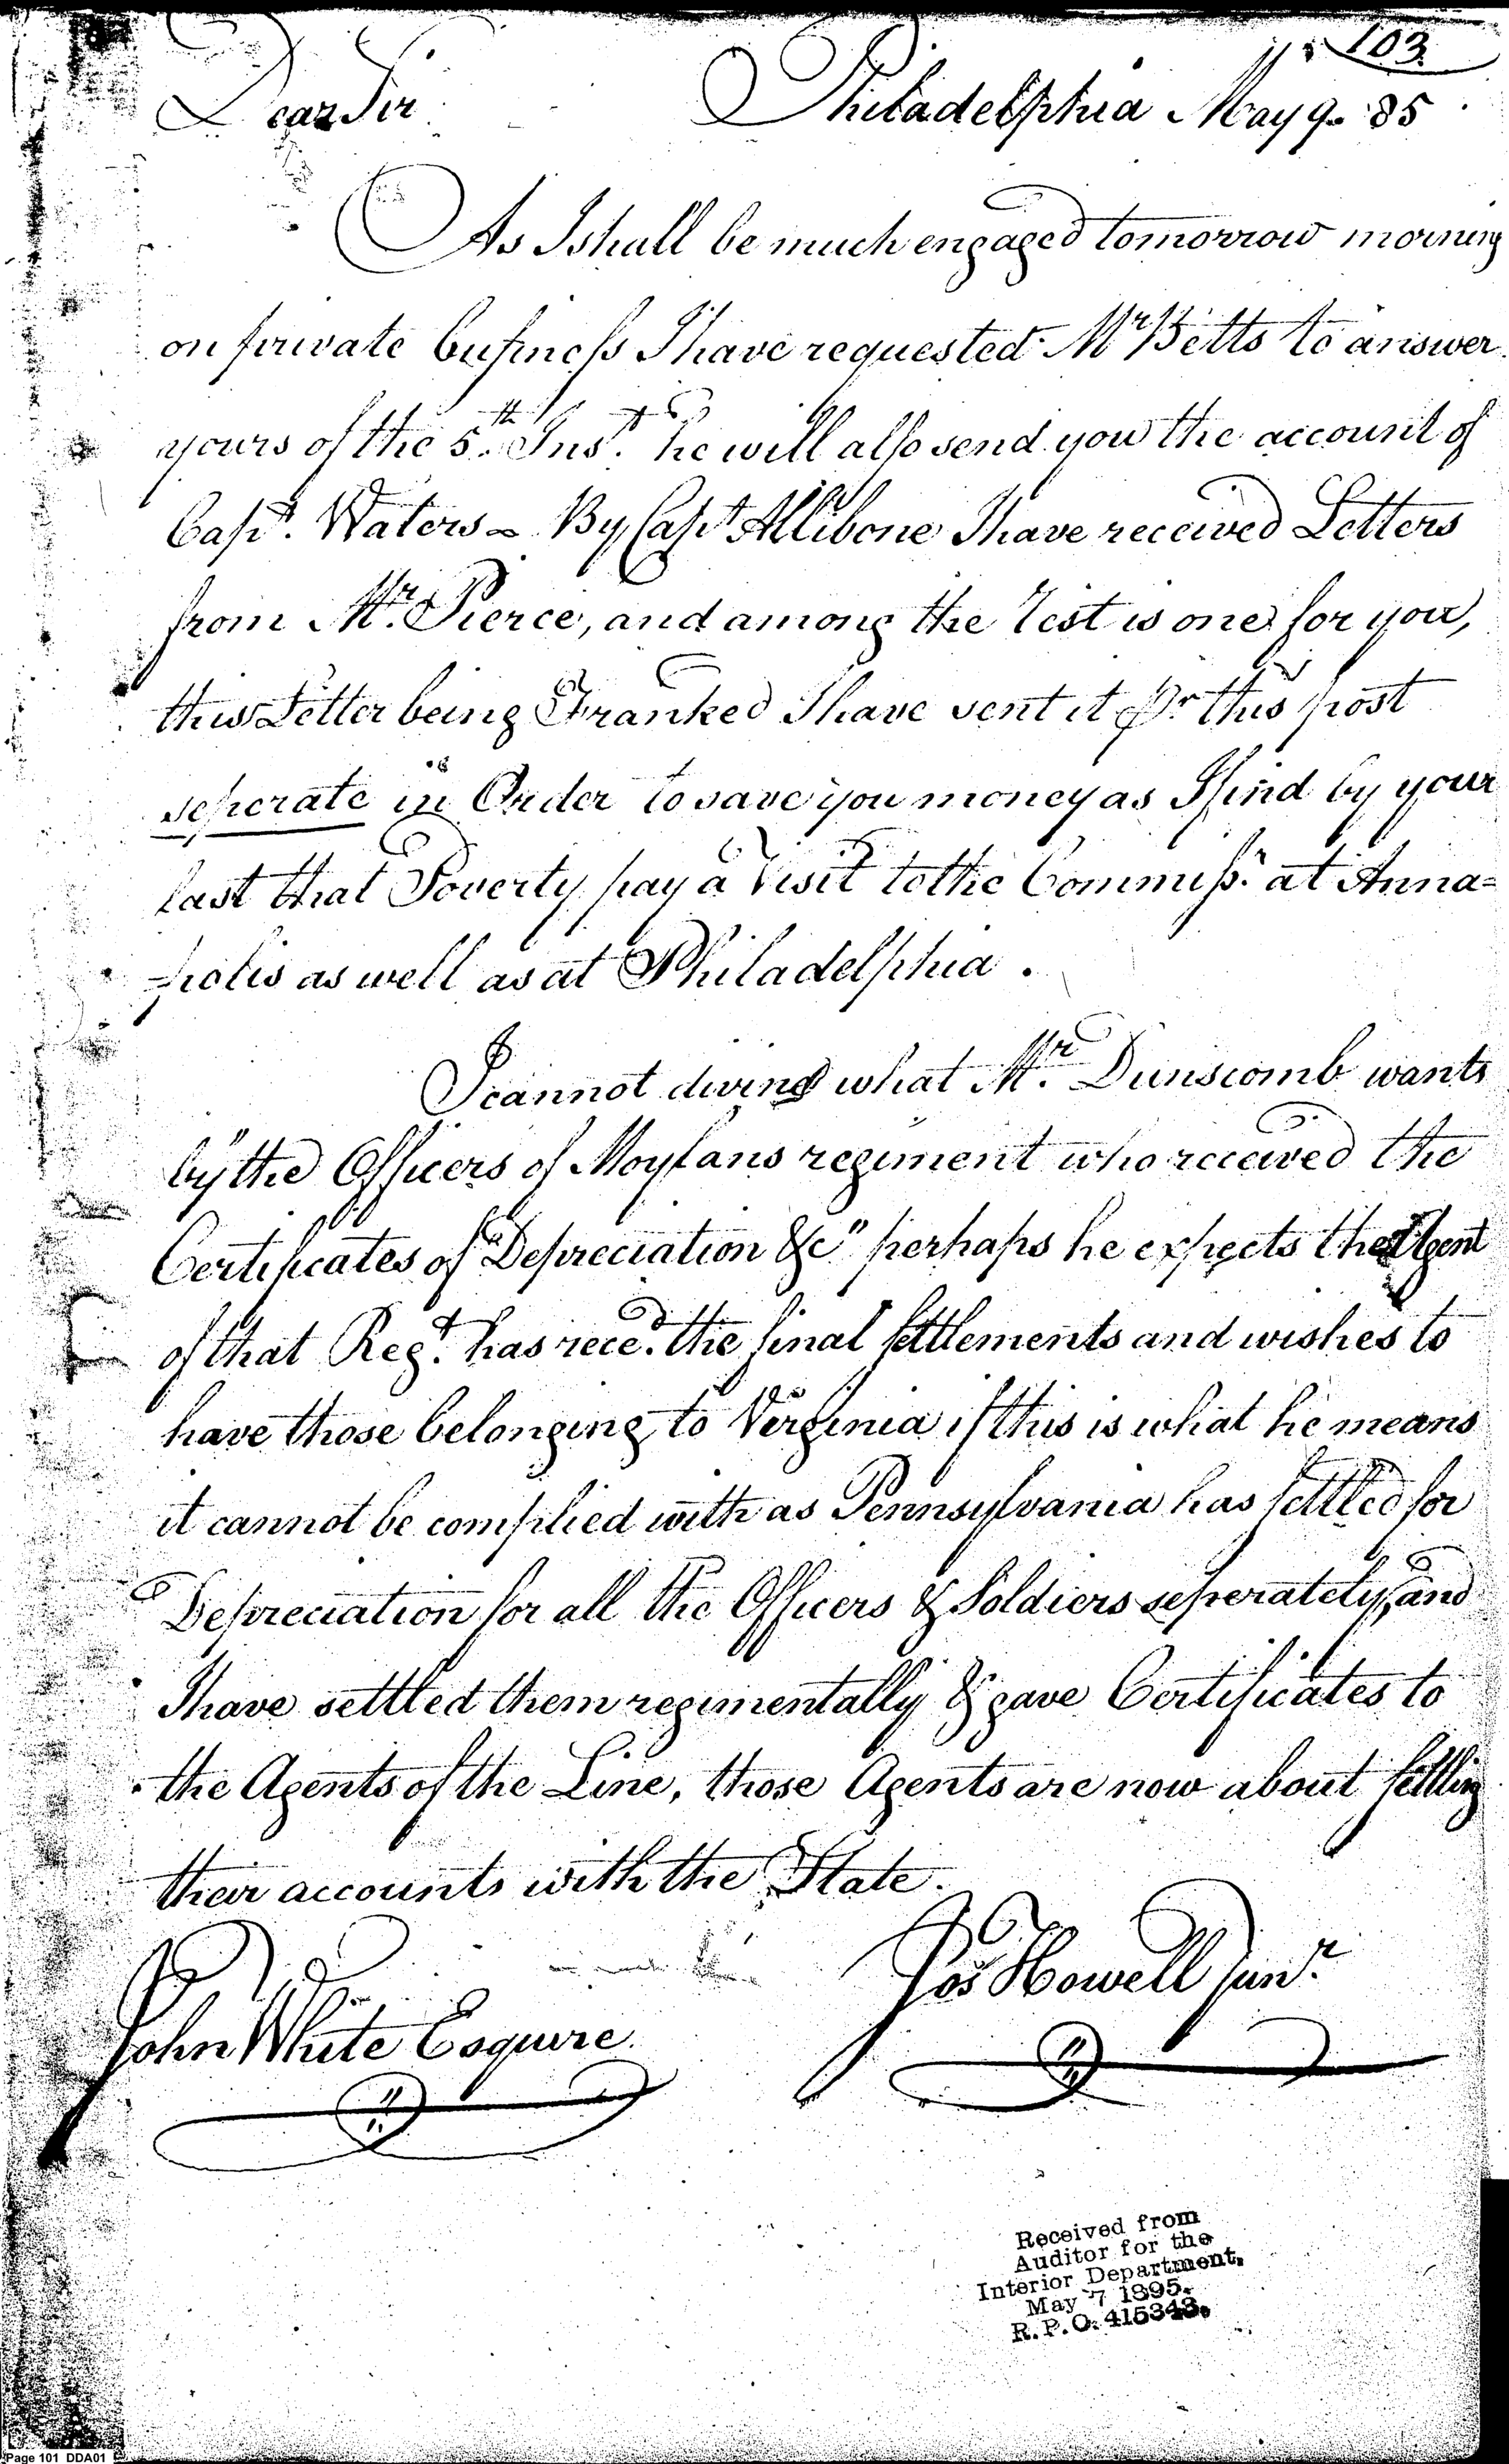 103
Dear Sir Philadelphia May 9. 85
As I shall be much engaged tomorrow morning
on private business I have requested Mr Betts to answer
yours of the 5.th Inst. he will also send you the account of
Capt. Waters - By Capt Allibone I have received Letters
from Mr. Pierce, and among the rest is one for you,
this Letter being Franked I have sent it Pr this post
seperate in Order to save you money as I find by your
last that Poverty pay a Visit to the Commissr. at Anna=
=polis as well as at Philadelphia.
I cannot divine what Mr. Dunscomb wants
by "the Officers of Moylans regiment who received the
Certificates of Depreciation &c" perhaps he expects the Agent
of that Regt. has recd. the final settlements and wishes to
have those belonging to Virginia if this is what he means
it cannot be complied with as Pennsylvania has settled for
Depreciation for all the Officers & Soldiers seperately, and
I have settled them regimentally & gave Certificates to
the Agents of the Line, those Agents are now about settling
their accounts with the State.
Jos Howell Junr.
John White Esquire.
Received from
Auditor for the
Interior Department,
May 7 1895.
R.P.O. 415343.
Page 101 DDA01